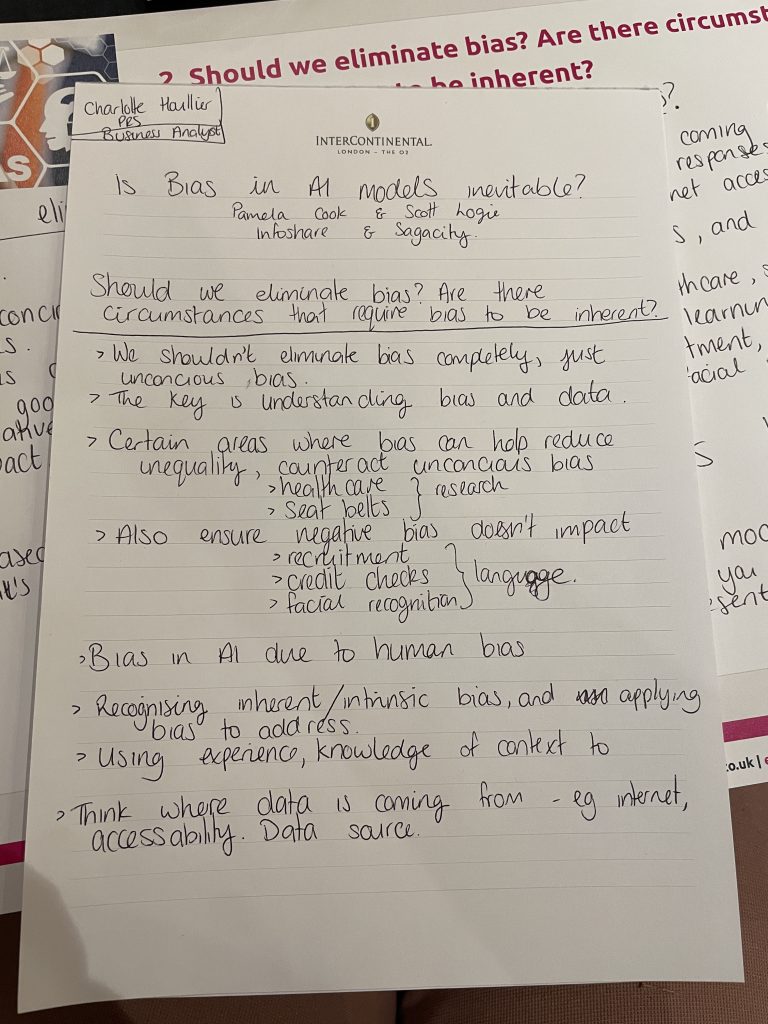 2. Should we eliminate bias? Are there circumst
to be inherent?
Charlotte Haullier
PRS
Business Analyst
INTERCONTINENTAL
LONDON – THE O2
Is Bias in AI models inevitable?
Pamela Cook & Scott Logie
Infoshare & Sagacity.
Should we eliminate bias? Are there
circumstances that require bias to be inherent?
> We shouldn't eliminate bias completely, just
unconcious bias.
> The key is understanding bias and data.
> Certain areas where bias can help reduce
inequality, counteract unconcious bias
> health care } research
> seat belts
> Also ensure negative bias doesn't impact
> recruitment
> credit checks } language.
> facial recognition
> Bias in AI due to human bias
> Recognising inherent/intrinsic bias, and applying
bias to address.
> Using experience, knowledge of context to
> Think where data is coming from - eg internet,
accessability. Data source.
coming
responses
net acces
s, and
hcare, s
learnin
tment,
acial
S
mod
you
sent
.co.uk |
eli
conci
s.
is
goo
ative
pact
ased
it's